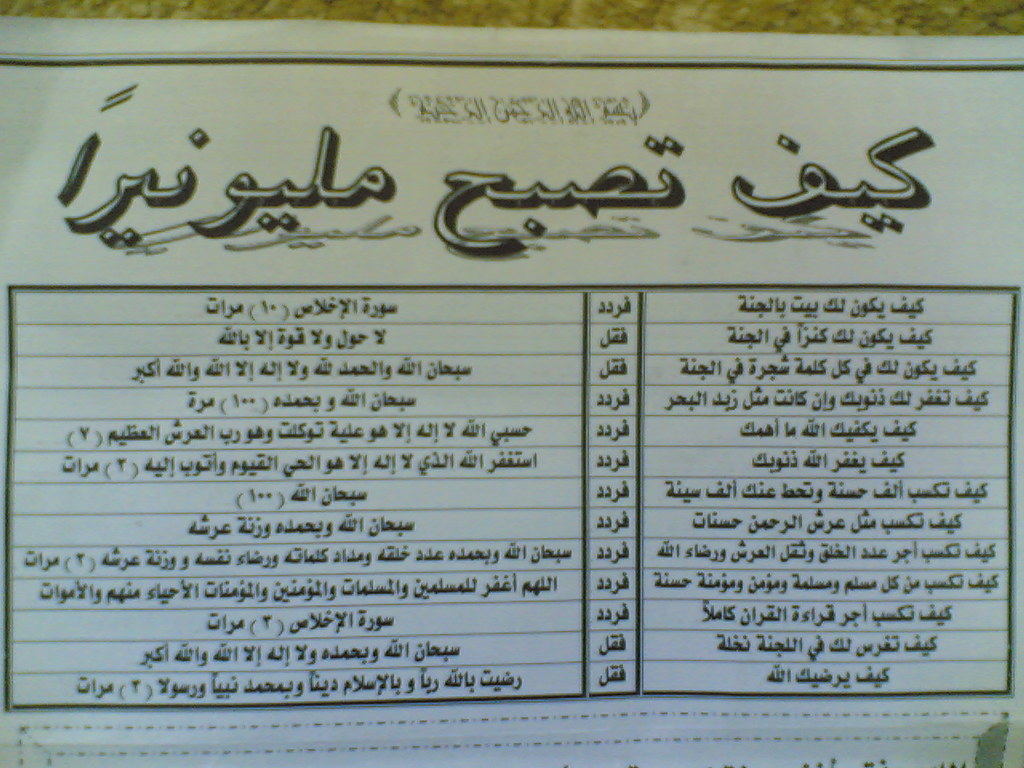 ﴿ بسم الله الرحمن الرحيم ﴾
كيف تصبح مليونيراً
كيف يكون لك بيت بالجنة فردد سورة الإخلاص (١٠) مرات
كيف يكون لك كنزاً في الجنة فقل لا حول ولا قوة إلا بالله
كيف يكون لك في كل كلمة شجرة في الجنة فقل سبحان الله والحمد لله ولا إله إلا الله والله أكبر
كيف تغفر لك ذنوبك وإن كانت مثل زبد البحر فردد سبحان الله و بحمده (١٠٠) مرة
كيف يكفيك الله ما أهمك فردد حسبي الله لا إله إلا هو علية توكلت وهو رب العرش العظيم (٧)
كيف يغفر الله ذنوبك فردد استغفر الله الذي لا إله إلا هو الحي القيوم وأتوب إليه (٣) مرات
كيف تكسب ألف حسنة وتحط عنك ألف سيئة فردد سبحان الله (١٠٠)
كيف تكسب مثل عرش الرحمن حسنات فردد سبحان الله وبحمده وزنة عرشه
كيف تكسب أجر عدد الخلق وثقل العرش ورضاء الله فردد سبحان الله وبحمده عدد خلقه ومداد كلماته ورضاء نفسه و وزنة عرشه (٣) مرات
كيف تكسب من كل مسلم ومسلمة ومؤمن ومؤمنة حسنة فردد اللهم أغفر للمسلمين والمسلمات والمؤمنين والمؤمنات الأحياء منهم والأموات
كيف تكسب أجر قراءة القران كاملاً فردد سورة الإخلاص (٣) مرات
كيف تغرس لك في اللجنة نخلة فقل سبحان الله وبحمده ولا إله إلا الله والله أكبر
كيف يرضيك الله فقل رضيت بالله رباً و بالإسلام ديناً وبمحمد نبياً ورسولا (٣) مرات